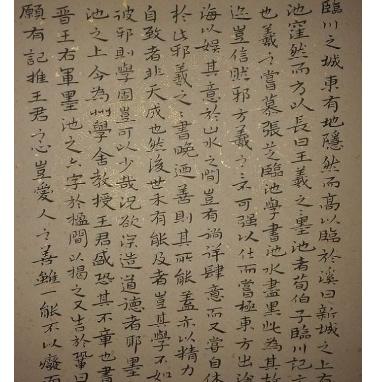 臨川之城東有地隱然而高以臨於溪曰新城之上有
池窪然而方以長曰王羲之之墨池者荀伯子臨川記云
也羲之嘗慕張芝臨池學書池水盡黑此為其故
迹豈信然邪方羲之之不可強以仕而嘗極東方出滄
海以娛其意於山水之間豈有徜徉肆意而又嘗自休
於此邪羲之之書晚迺善則其所能蓋亦以精力
自致者非天成也然後世未有能及者豈其學不如
彼邪則學固豈可以少哉況欲深造道德者邪墨
池之上今為州學舍教授王君盛恐其不章也書
晉王右軍墨池之六字於楹間以揭之又告於鞏曰
願有記推王君之心豈愛人之善雖一能不以廢而